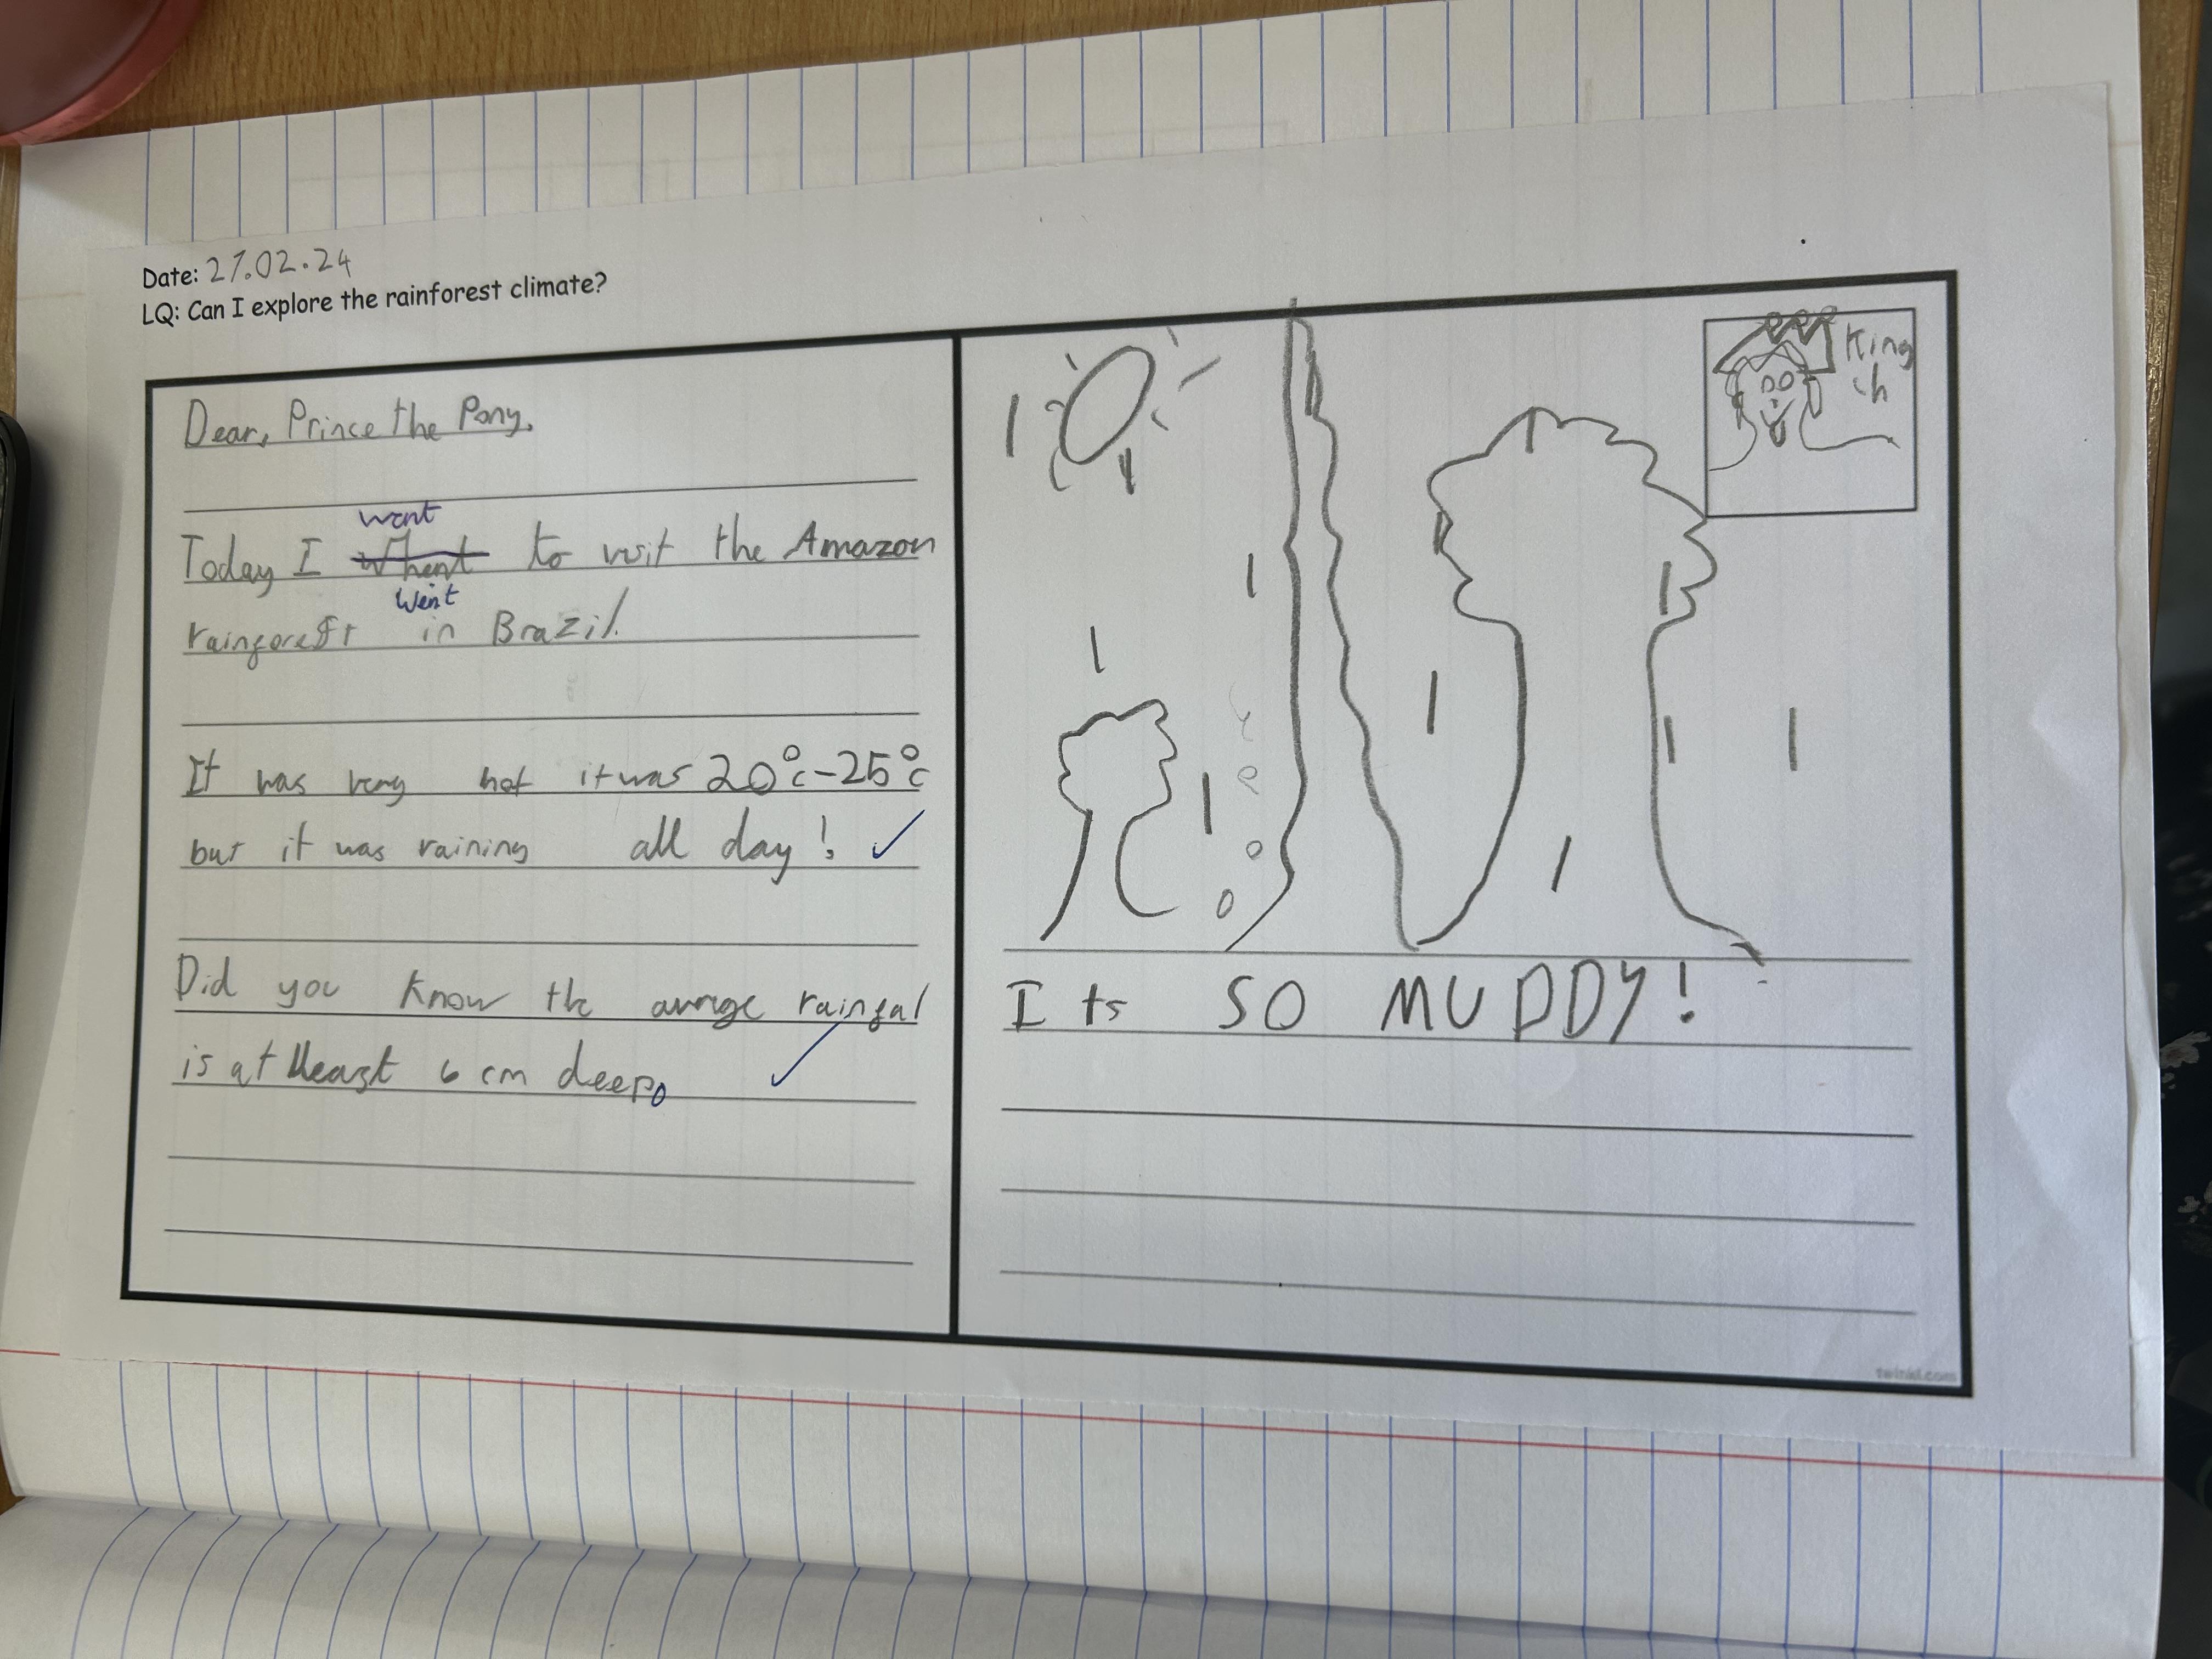 Date: 27.02.24
LQ: Can I explore the rainforest climate?
Dear, Prince the Pony.
went
Today I whent to visit the Amazon
Went
rainforest in Brazil.
It was very hot it was 20°c-25°c
but it was raining all day!
Did you know the avrage rainfal
is at least 6 cm deep.
King
ch
Its SO MUDDY!
twinkl.com